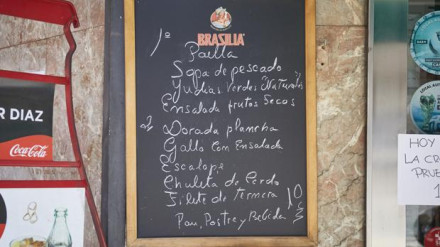 BRASILIA
1º
Paella
Sopa de pescado
Yudias Verdes Naturales
Ensalada frutos Secos
2º
Dorada plancha
Gallo con Ensalada
Escalope
Chuleta de Cerdo
Filete de Ternera
Pan, Postre y Bebida
10
R DIAZ
Coca-Cola
HOY
LA CR
PRUE
1